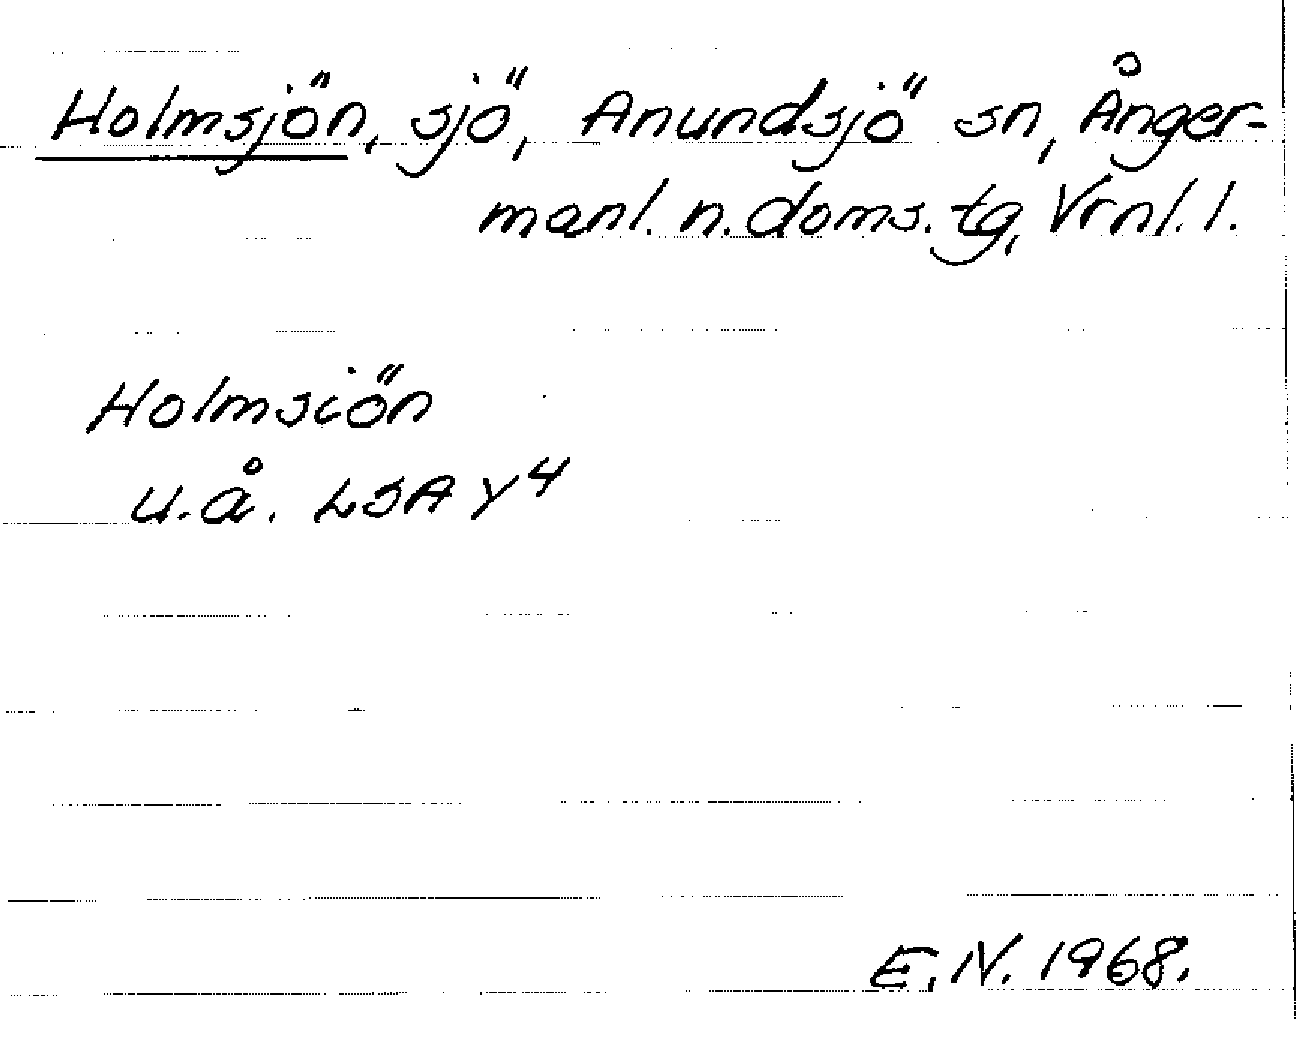 Holmsjön, sjö, Anundsjö sn, Ånger-
manl. n. doms. tg, Vrnl. l.
Holmsiön
u.å. LSA Y4
E.N. 1968.